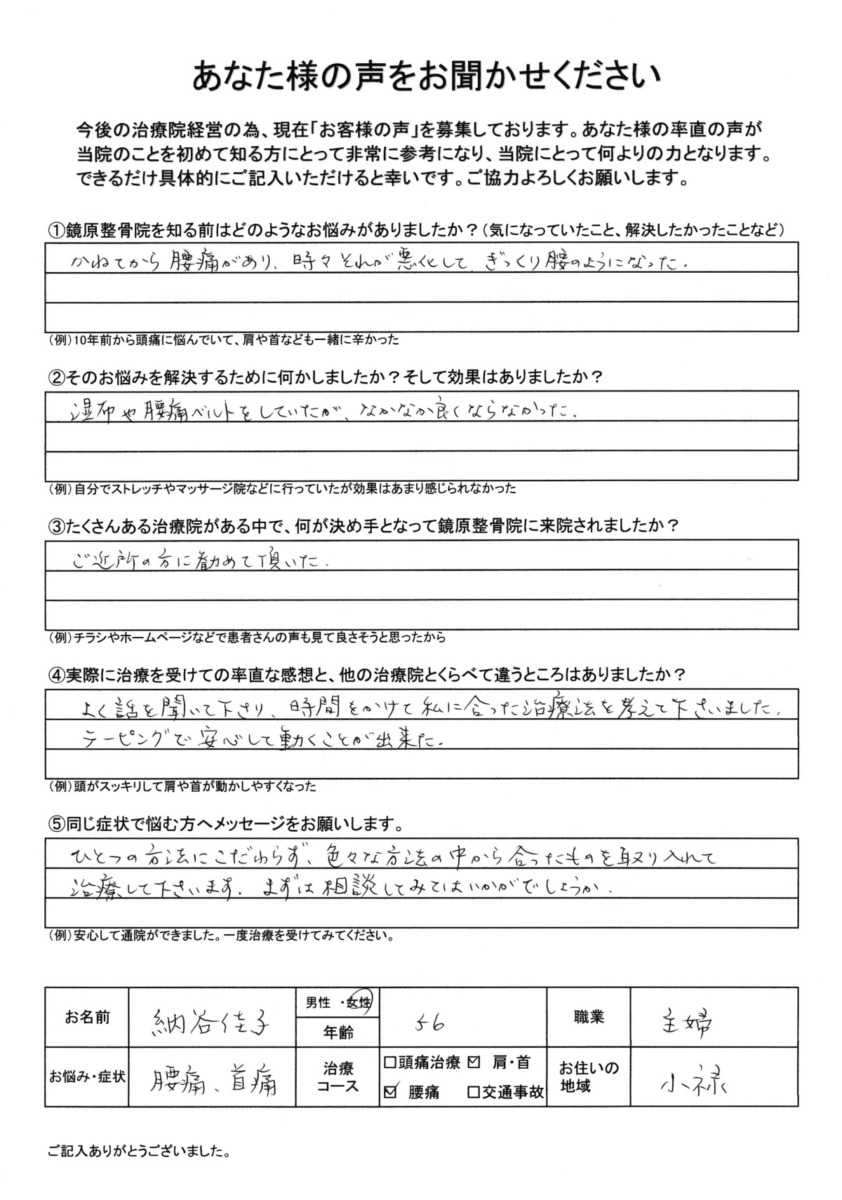 あなた様の声をお聞かせください
今後の治療院経営の為、現在「お客様の声」を募集しております。あなた様の率直の声が
当院のことを初めて知る方にとって非常に参考になり、当院にとって何よりの力となります。
できるだけ具体的にご記入いただけると幸いです。ご協力よろしくお願いします。
①鏡原整骨院を知る前はどのようなお悩みがありましたか？（気になっていたこと、解決したかったことなど）
かねてから腰痛があり、時々それが悪化して ぎっくり腰のようになった.
（例）10年前から頭痛に悩んでいて、肩や首なども一緒に辛かった
②そのお悩みを解決するために何かしましたか？そして効果はありましたか？
湿布や腰痛ベルトをしていたが、なかなか良くならなかった.
（例）自分でストレッチやマッサージ院などに行っていたが効果はあまり感じられなかった
③たくさんある治療院がある中で、何が決め手となって鏡原整骨院に来院されましたか？
ご近所の方に勧めて頂いた.
（例）チラシやホームページなどで患者さんの声も見て良さそうと思ったから
④実際に治療を受けての率直な感想と、他の治療院とくらべて違うところはありましたか？
よく話を聞いて下さり、時間をかけて私に合った治療法を考えて下さいました.
テーピングで安心して動くことが出来た.
（例）頭がスッキリして肩や首が動かしやすくなった
⑤同じ症状で悩む方へメッセージをお願いします。
ひとつの方法にこだわらず、色々な方法の中から合ったものを取り入れて
治療して下さいます. まずは相談してみてはいかがでしょうか.
（例）安心して通院ができました。一度治療を受けてみてください。
お名前 納谷佳子 男性・女性 年齢 56 職業 主婦
お悩み・症状 腰痛、首痛 治療コース □頭痛治療 ☑肩・首 ☑腰痛 □交通事故 お住いの地域 小禄
ご記入ありがとうございました。